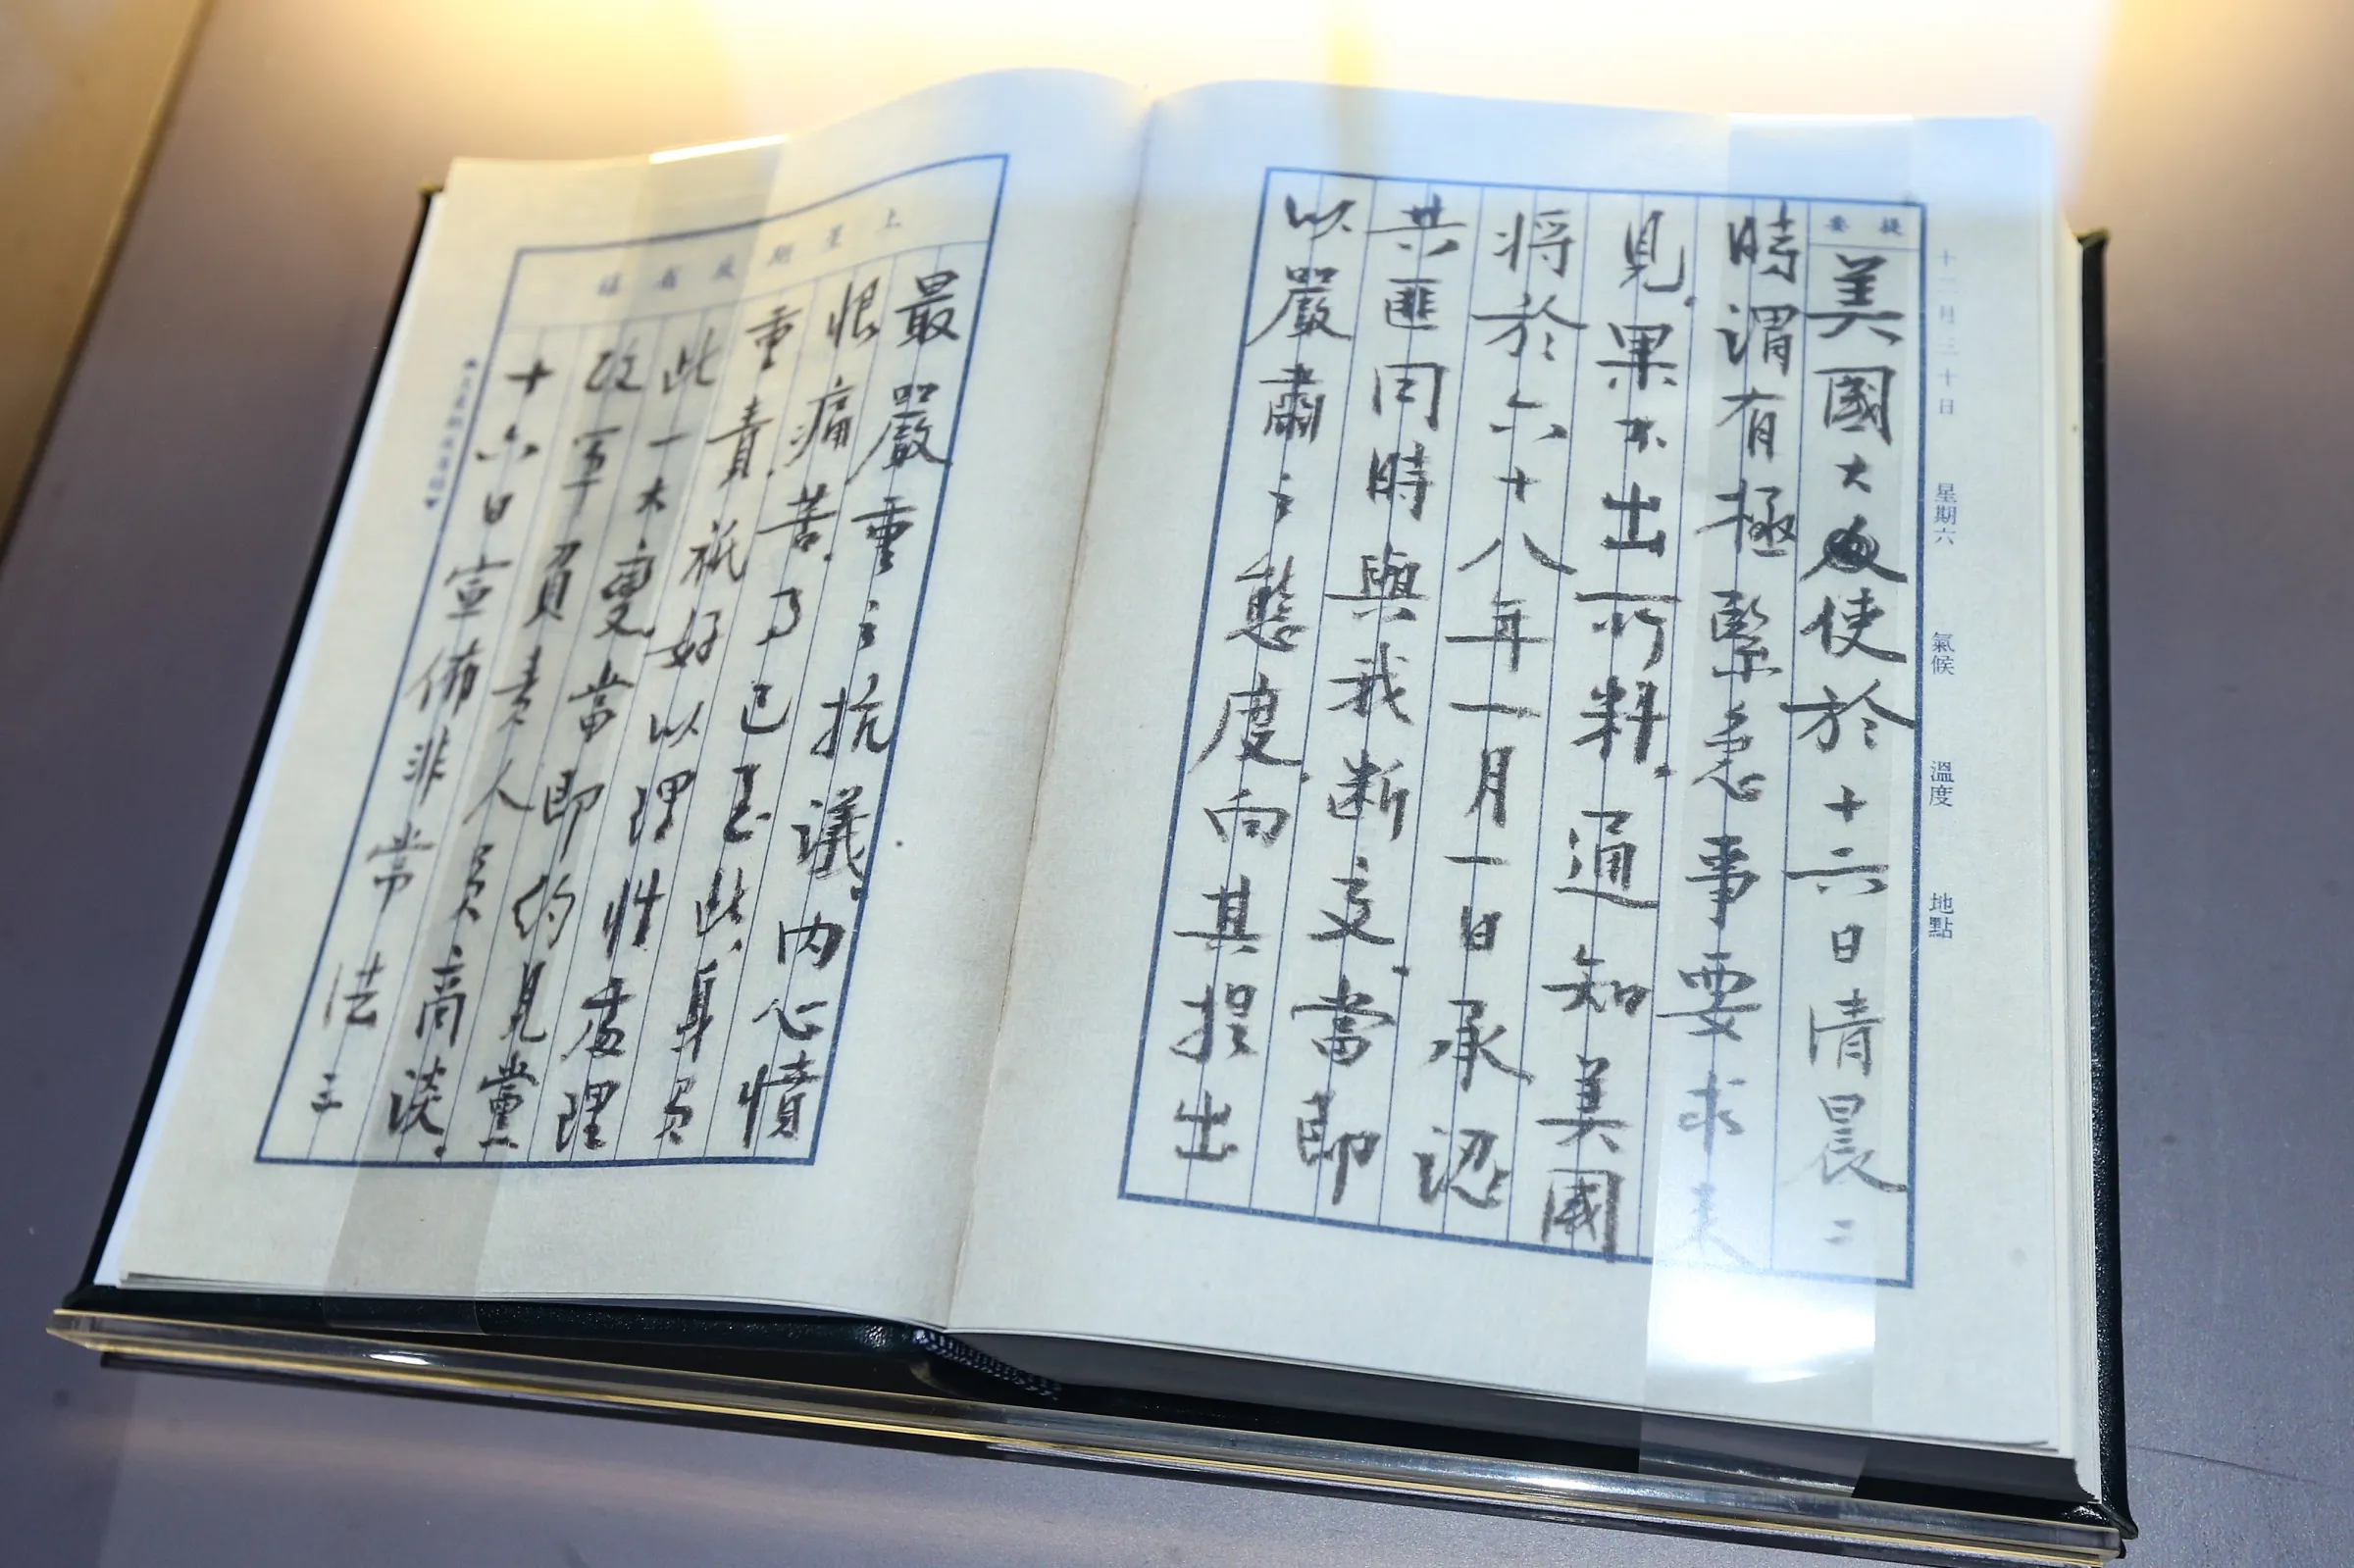 十二月三十日 星期六 氣候 溫度 地點
提要
美國大使於十六日清晨二
時謂有極緊急事要求來
見.果不出所料.通知美國
將於六十八年一月一日承認
共匪同時與我断交.當即
以嚴肅之態度向其提出
上星期反省錄
最嚴重之抗議。內心憤
恨痛苦.事已至此.身負
重責.祇好以理性處理
此一大變當即約見黨
政軍負責人員商談.
十六日宣佈非常法三